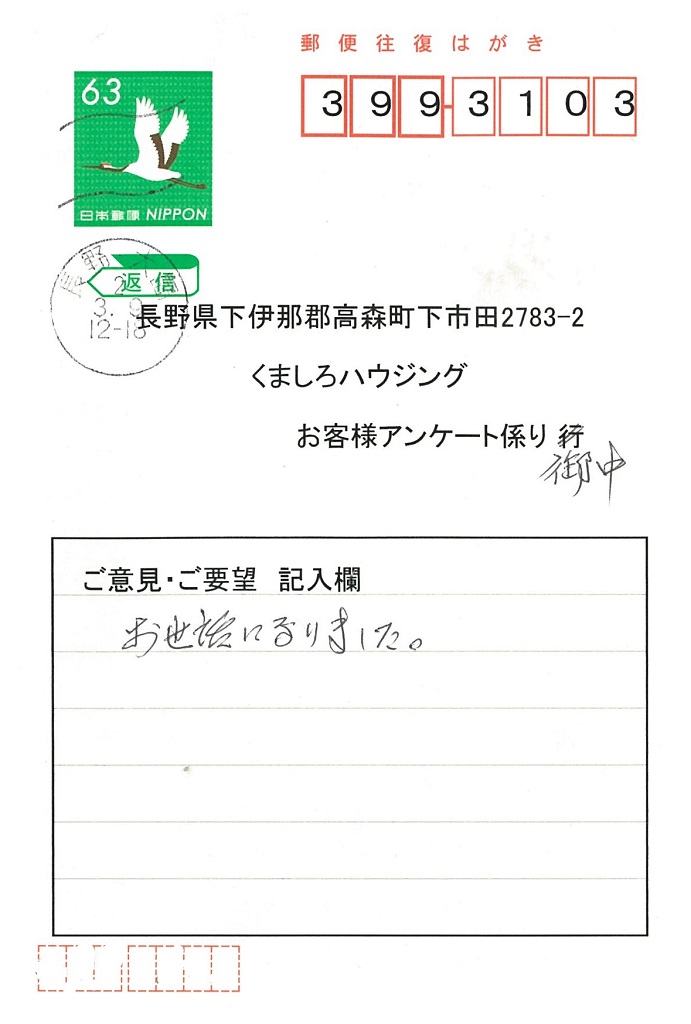 郵便往復はがき
63
399-3103
日本郵便 NIPPON
返信
長野
3. 9
12-18
長野県下伊那郡高森町下市田2783-2
くましろハウジング
お客様アンケート係り 行
御中
ご意見・ご要望 記入欄
お世話になりました。